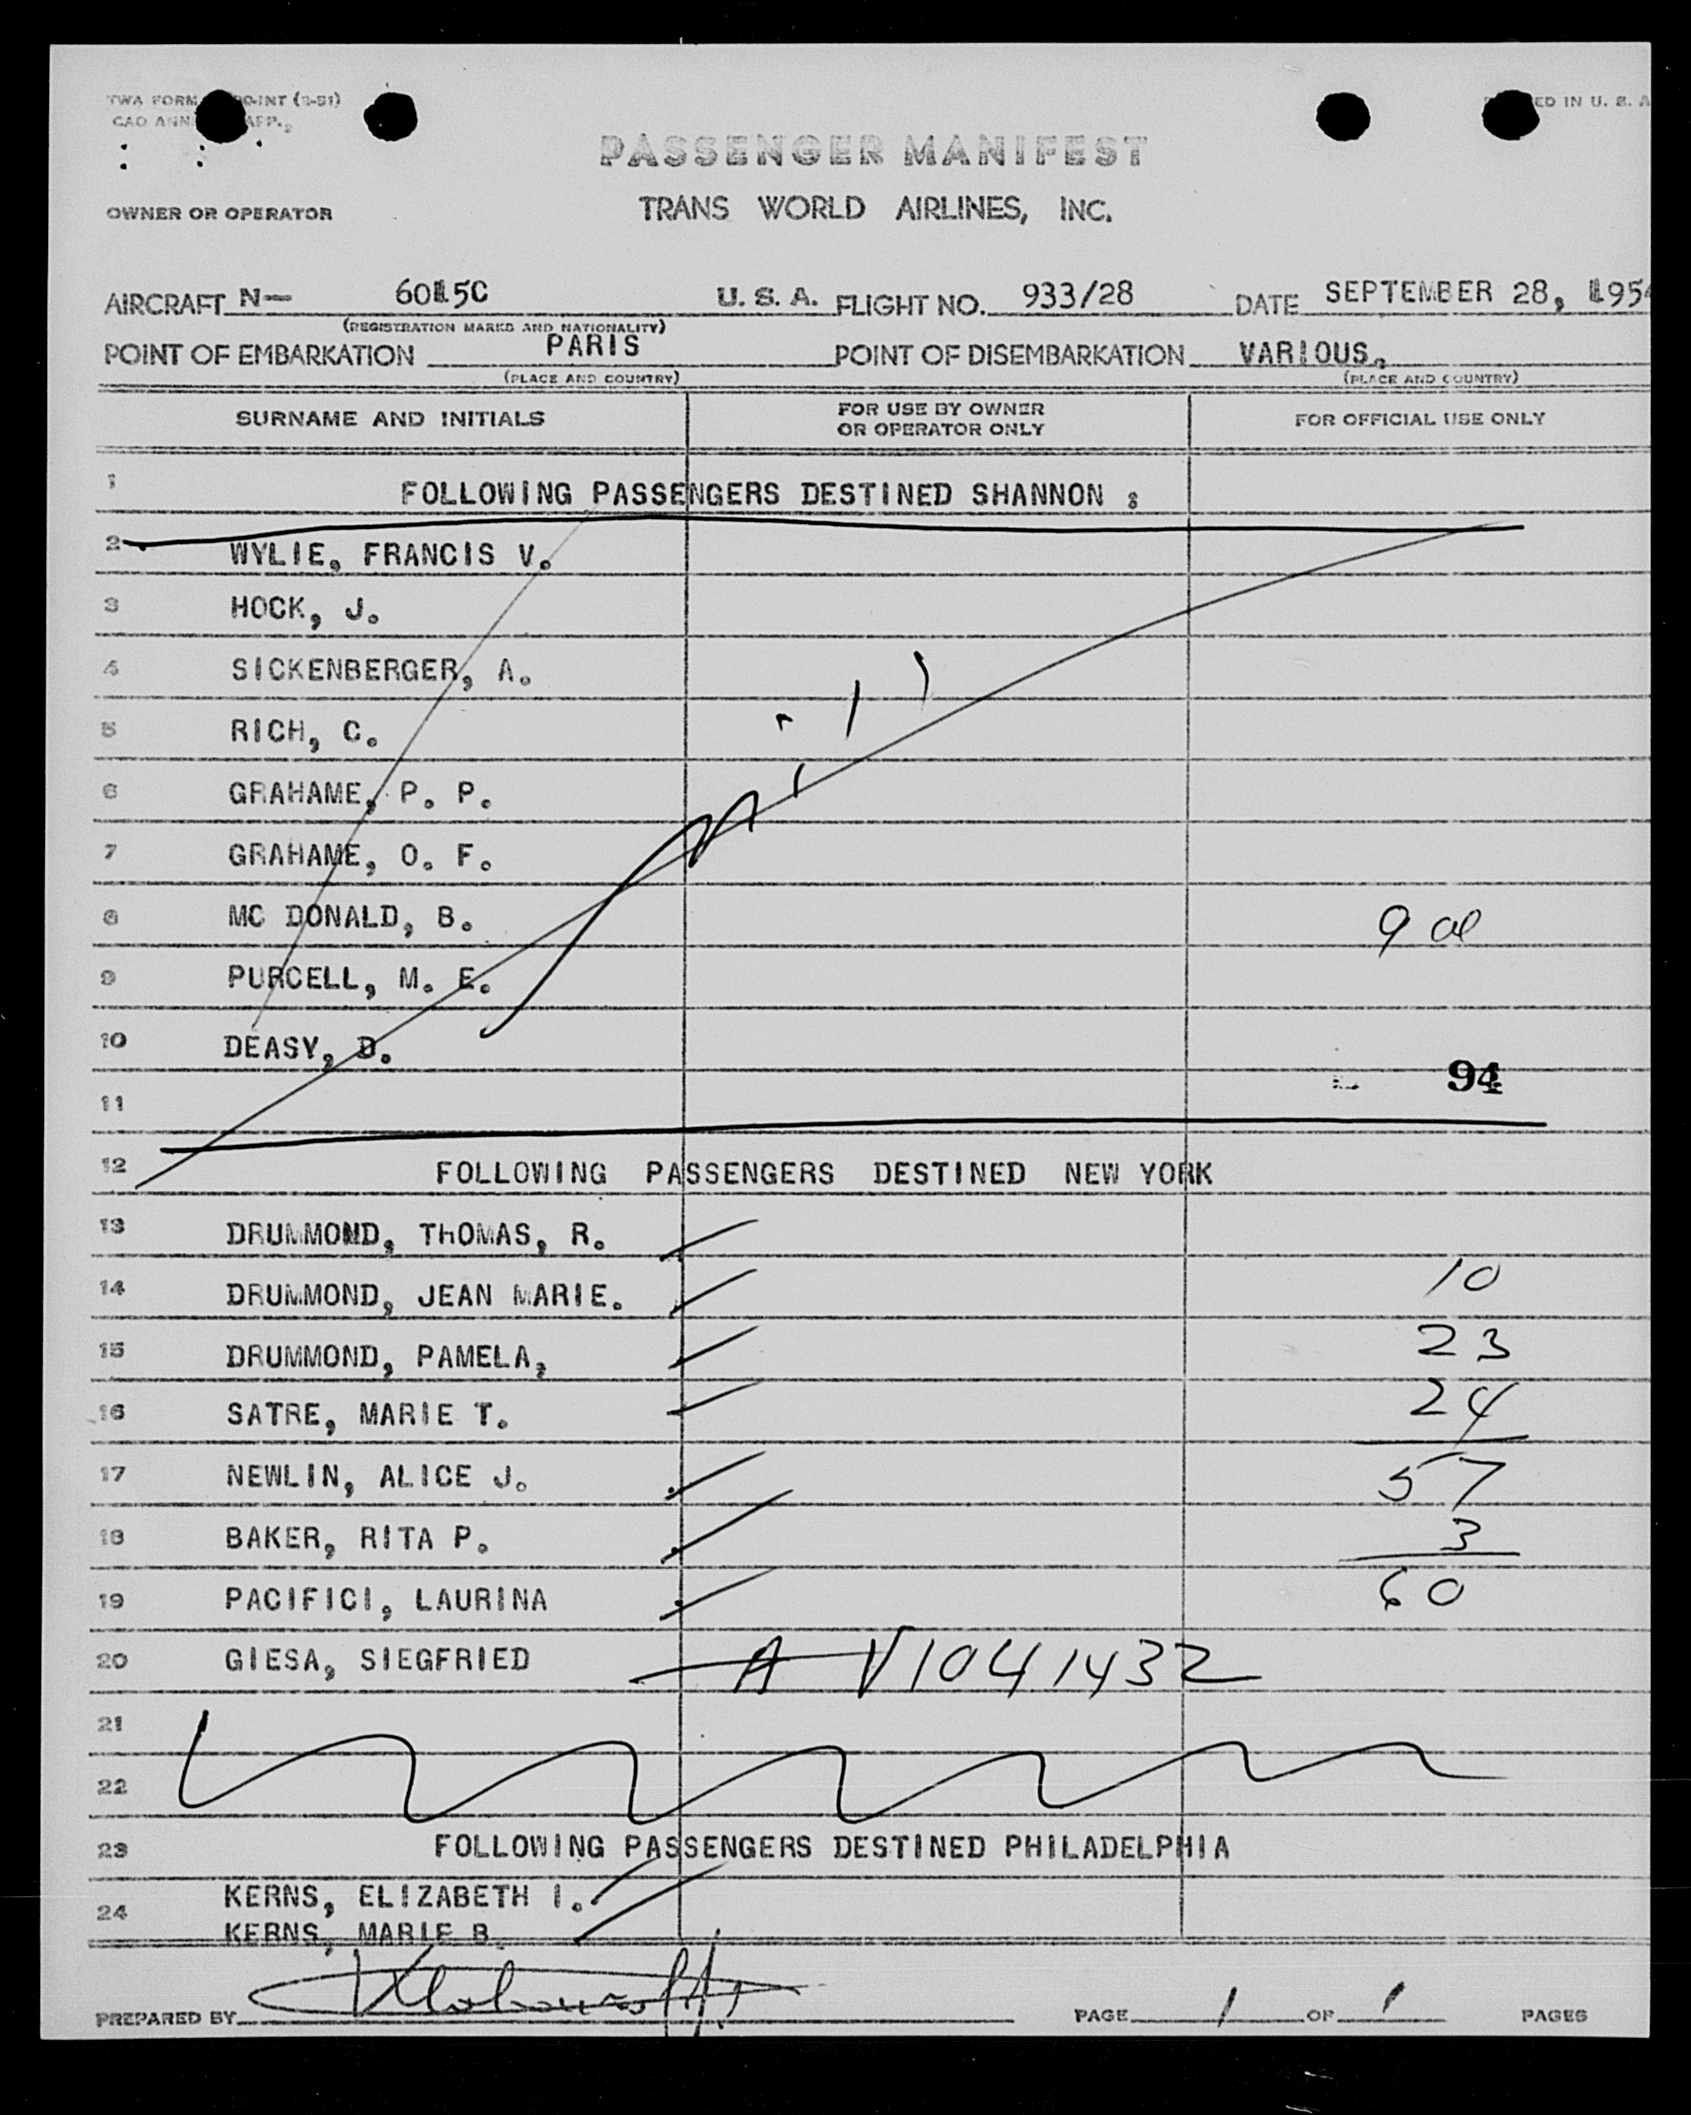 TWA FORM INT (2-51)
CAO ANN APP. 2
ED IN U. S. A
PASSENGER MANIFEST
OWNER OR OPERATOR
TRANS WORLD AIRLINES, INC.
AIRCRAFT N— 6015C U. S. A. FLIGHT NO. 933/28 DATE SEPTEMBER 28, 1954
(REGISTRATION MARKS AND NATIONALITY)
POINT OF EMBARKATION PARIS POINT OF DISEMBARKATION VARIOUS.
(PLACE AND COUNTRY) (PLACE AND COUNTRY)
SURNAME AND INITIALS FOR USE BY OWNER OR OPERATOR ONLY FOR OFFICIAL USE ONLY
1 FOLLOWING PASSENGERS DESTINED SHANNON :
2 WYLIE, FRANCIS V.
3 HOCK, J.
4 SICKENBERGER, A.
5 RICH, C.
6 GRAHAME, P. P.
7 GRAHAME, O. F.
8 MC DONALD, B. 9
9 PURCELL, M. E.
10 DEASY, D.
94
11
12 FOLLOWING PASSENGERS DESTINED NEW YORK
13 DRUMMOND, THOMAS, R.
14 DRUMMOND, JEAN MARIE. 10
15 DRUMMOND, PAMELA, 23
16 SATRE, MARIE T. 24
17 NEWLIN, ALICE J. 57
18 BAKER, RITA P. 3
19 PACIFICI, LAURINA 60
20 GIESA, SIEGFRIED A V1041432
21
22
23 FOLLOWING PASSENGERS DESTINED PHILADELPHIA
24 KERNS, ELIZABETH I.
KERNS, MARIE B.
PREPARED BY PAGE 1 OF 1 PAGES